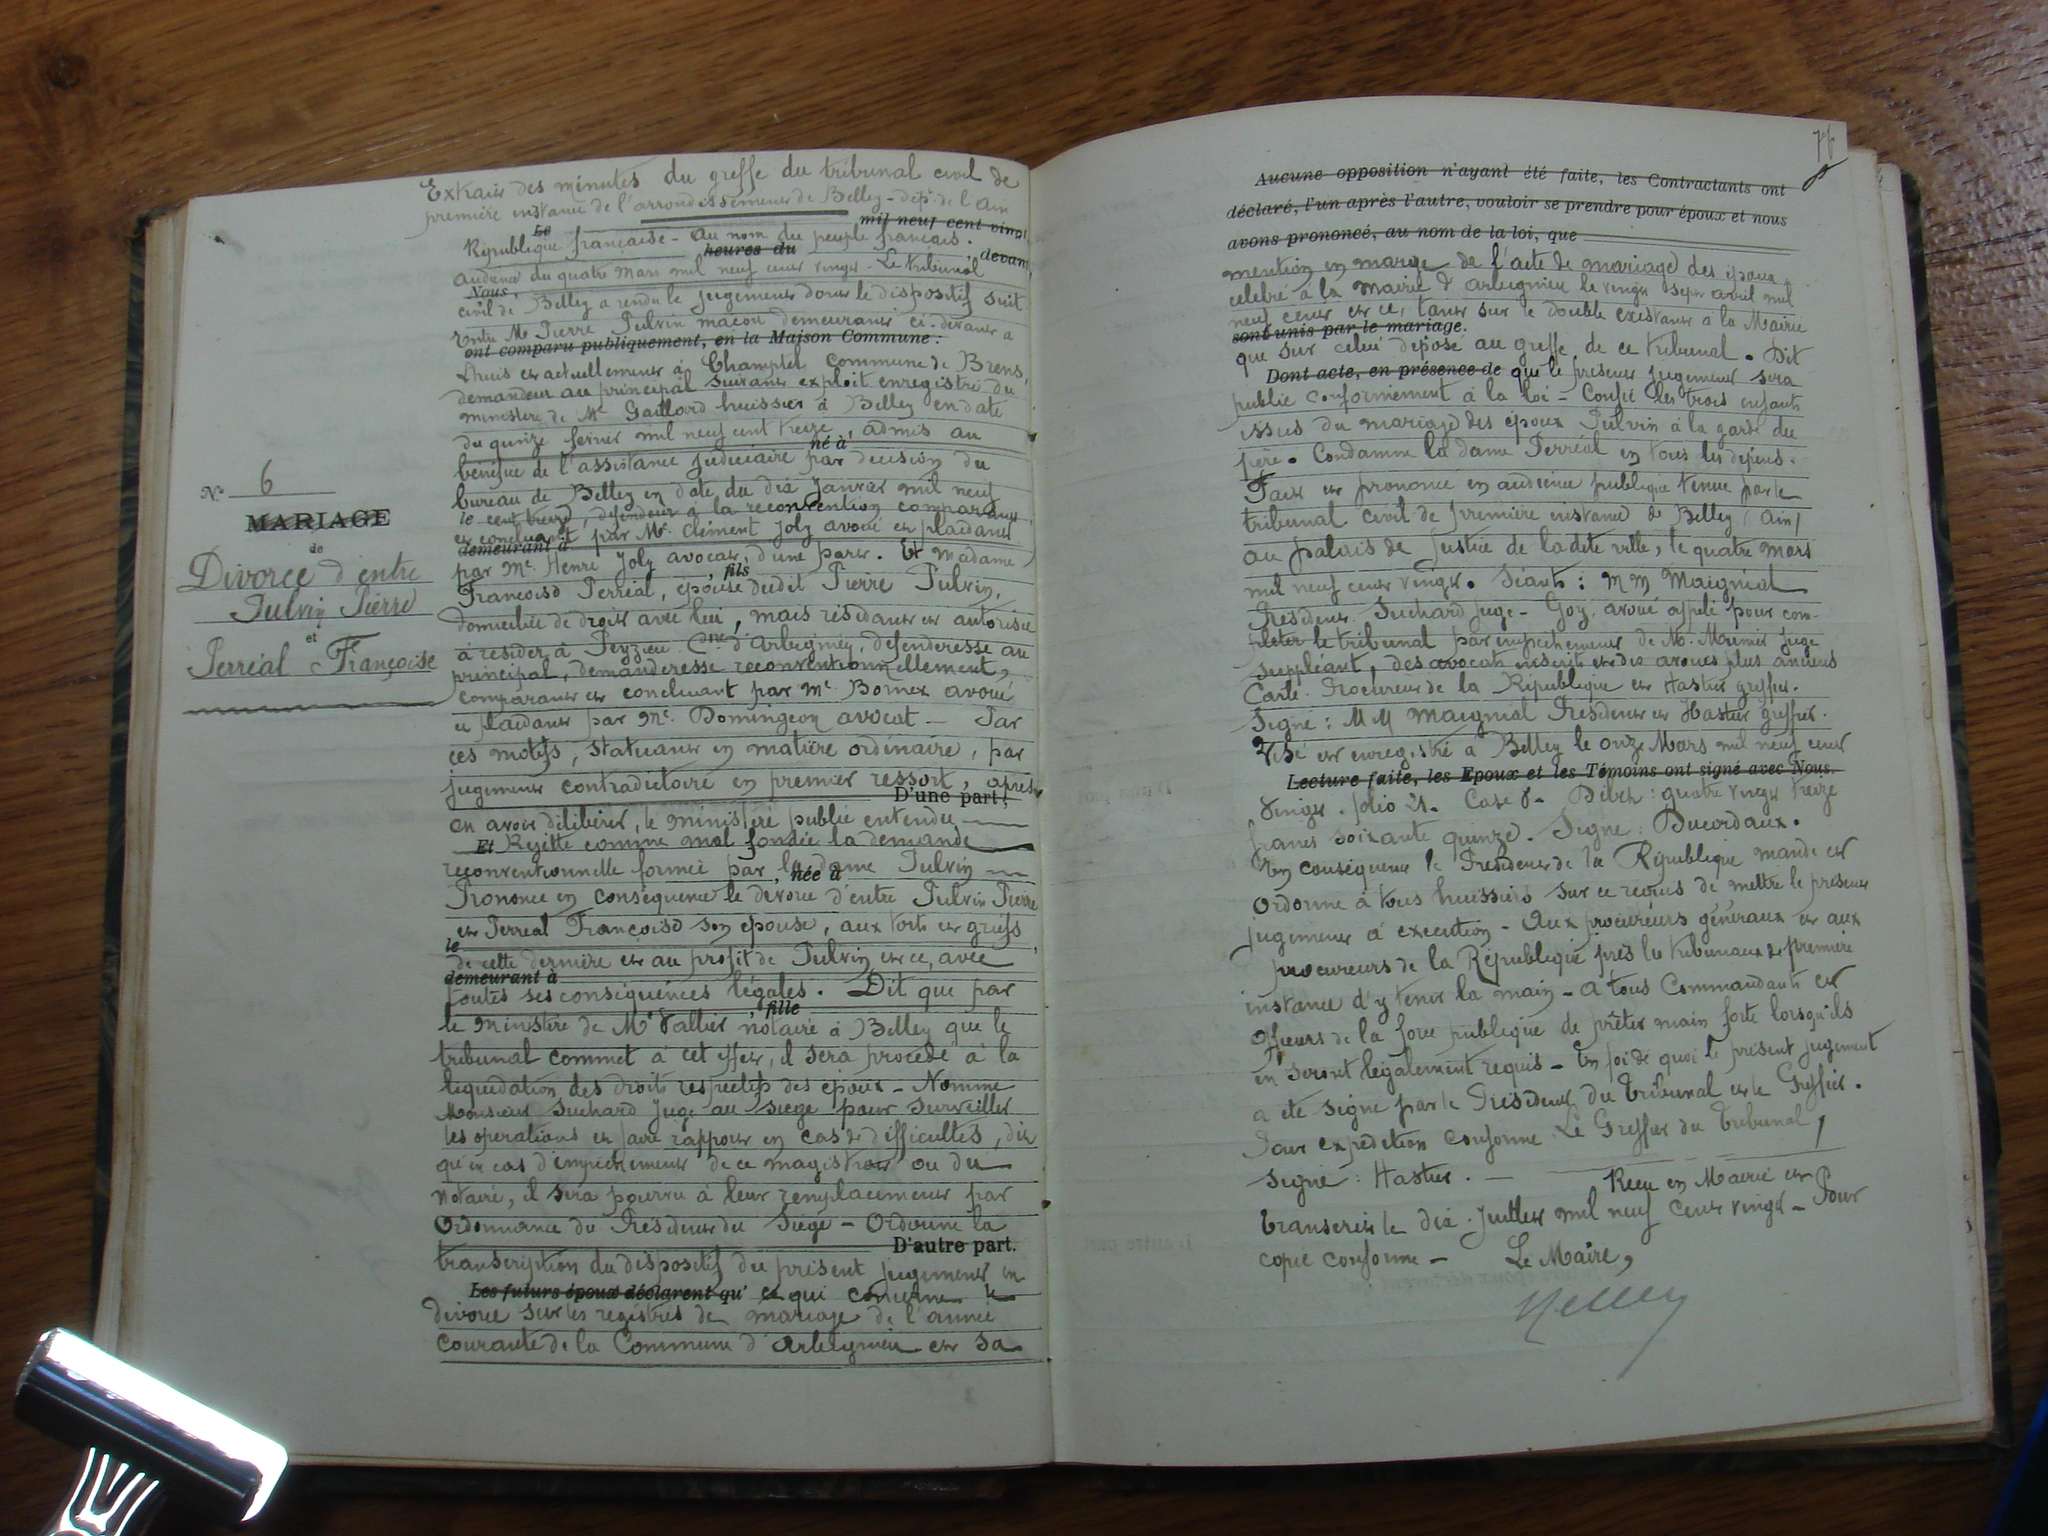 Extrait des minutes du greffe du tribunal civil de
première instance de l'arrondissement de Belley - dépt de l'Ain
Le mil neuf cent vingt
République française - Au nom du peuple français.
heures du , devant
Audience du quatre Mars mil neuf cent vingt - Le tribunal
Nous,
civil de Belley a rendu le jugement dont le dispositif suit
Entre Mr Pierre Pulvin maçon demeurant ci-devant à
ont comparu publiquement, en la Maison Commune :
Lhuis et actuellement à Champtel commune de Brens,
demandeur au principal suivant exploit enregistré du
ministère de Me Gaillard huissier à Belley en date
du quinze février mil neuf cent treize, admis au
né à
bénéfice de l'assistance judiciaire par décision du
bureau de Belley en date du dix janvier mil neuf
le cent treize, défendeur à la reconvention comparant
et concluant par Me Clément Joly avoué et plaidant
demeurant à
par Me Henri Joly avocat, d'une part. Et Madame
, fils
Françoise Perréal, épouse dudit Pierre Pulvin,
domiciliée de droit avec lui, mais résidant et autorisée
à résider à Peyzieu Cne d'Arbignieu, défenderesse au
principal, demanderesse reconventionnellement,
comparant et concluant par Me Bornex avoué
et plaidant par Me Domingeon avocat - Par
ces motifs, statuant en matière ordinaire, par
jugement contradictoire en premier ressort, après
D'une part ;
en avoir délibéré, le ministère public entendu
Et Rejette comme mal fondée la demande
reconventionnelle formée par la dame Pulvin
, née à
Prononce en conséquence le divorce d'entre Pulvin Pierre
et Perréal Françoise son épouse, aux torts et griefs
le
de cette dernière et au profit de Pulvin et ce, avec
demeurant à
toutes ses conséquences légales. Dit que par
, fille
le Ministère de Me Vallier notaire à Belley que le
tribunal commet à cet effet, il sera procédé à la
liquidation des droits respectifs des époux - Nomme
Monsieur Suchard Juge au siège pour surveiller
les opérations et faire rapport en cas de difficultés, dit
qu'en cas d'empêchement de ce magistrat ou du
notaire, il sera pourvu à leur remplacement par
Ordonnance du Président du Siège - Ordonne la
D'autre part.
transcription du dispositif du présent jugement en
Les futurs époux déclarent qu' ce qui concerne le
divorce sur les registres de mariage de l'année
courante de la Commune d'Arbignieu et sa
No 6
MARIAGE
de
Divorce d'entre
Pulvin Pierre
et
Perréal Françoise
76
Aucune opposition n'ayant été faite, les Contractants ont
déclaré, l'un après l'autre, vouloir se prendre pour époux et nous
avons prononcé, au nom de la loi, que
mention en marge de l'acte de mariage des époux
célébré à la mairie d'Arbignieu le vingt sept avril mil
neuf cent et ce, tant sur le double existant à la Mairie
sont unis par le mariage.
que sur celui déposé au greffe de ce tribunal. Dit
Dont acte, en présence de que le présent jugement sera
publié conformément à la loi - Confie les trois enfants
issus du mariage des époux Pulvin à la garde du
père. Condamne la dame Perréal en tous les dépens.
Fait et prononcé en audience publique tenue par le
tribunal civil de première instance de Belley (Ain)
au palais de Justice de ladite ville, le quatre mars
mil neuf cent vingt. Séants : MM Maignial
Président. Suchard Juge - Goy, avoué appelé pour com-
pléter le tribunal par empêchement de M. Meunier Juge
suppléant, des avocats inscrits et des avoués plus anciens
Carle Procureur de la République et Hastier greffier.
Signé : MM Maignial Président et Hastier greffier.
Visé et enregistré à Belley le onze Mars mil neuf cent
Lecture faite, les Epoux et les Témoins ont signé avec Nous.
vingt. folio 21. Case 8. Débet : quatre vingt treize
francs soixante quinze. Signé : Ducordaux.
En conséquence le Président de la République mande et
ordonne à tous huissiers sur ce requis de mettre le présent
jugement à exécution - Aux procureurs généraux et aux
procureurs de la République près les tribunaux de première
instance d'y tenir la main - A tous Commandants et
Officiers de la force publique de prêter main forte lorsqu'ils
en seront légalement requis - En foi de quoi le présent jugement
a été signé par le Président du Tribunal et le Greffier.
Pour expédition conforme Le Greffier du Tribunal,
Signé : Hastier. - Reçu en Mairie et
transcrit le dix Juillet mil neuf cent vingt - Pour
copie conforme - Le Maire,